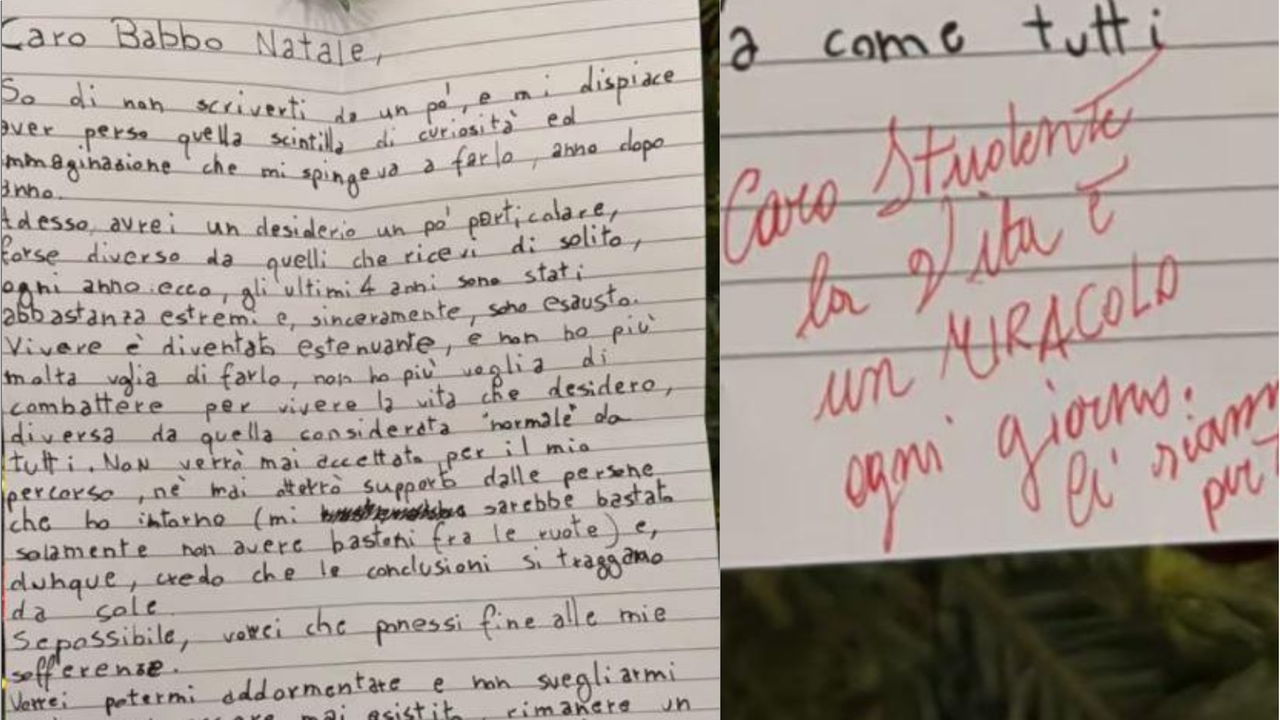 Caro Babbo Natale,
So di non scriverti da un po', e mi dispiace
aver perso quella scintilla di curiosità ed
immaginazione che mi spingeva a farlo, anno dopo
anno.
Adesso, avrei un desiderio un po' particolare,
forse diverso da quelli che ricevi di solito,
ogni anno: ecco, gli ultimi 4 anni sono stati
abbastanza estremi e, sinceramente, sono esausto.
Vivere è diventato estenuante, e non ho più
molta voglia di farlo, non ho più voglia di
combattere per vivere la vita che desidero,
diversa da quella considerata "normale" da
tutti. Non verrò mai accettato per il mio
percorso, nè mai otterrò supporto dalle persone
che ho intorno (mi sarebbe bastato
solamente non avere bastoni fra le ruote) e,
dunque, credo che le conclusioni si traggano
da sole.
Se possibile, vorrei che ponessi fine alle mie
sofferenze.
Vorrei potermi addormentare e non svegliarmi
mai esistito, rimanere un
a come tutti
Caro Studente
la Vita è
un MIRACOLO
ogni giorno.